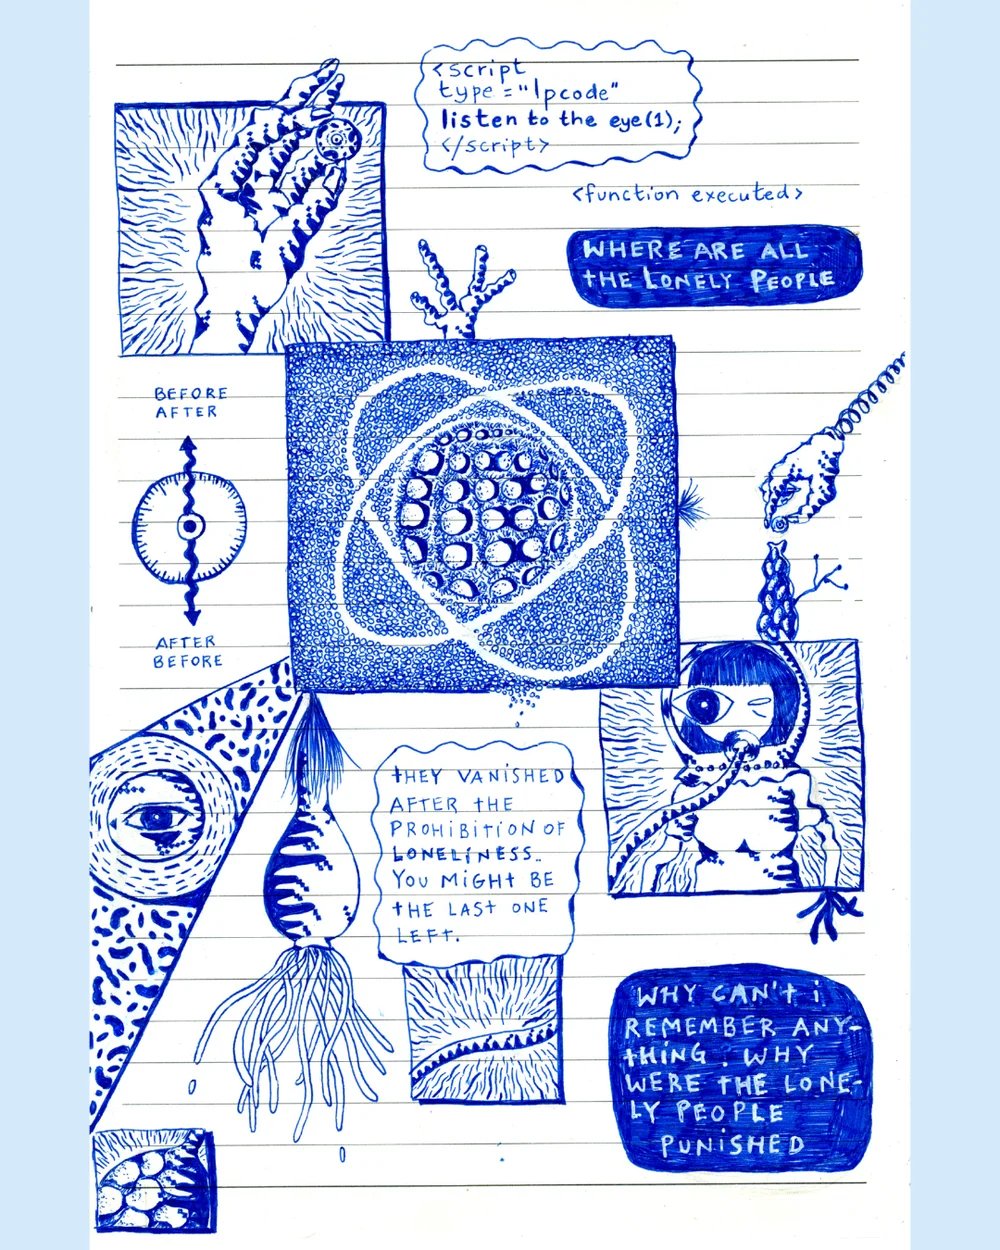 <script
type="lpcode"
listen to the eye(1);
</script>
<function executed>
WHERE ARE ALL
THE LONELY PEOPLE
BEFORE
AFTER
AFTER
BEFORE
THEY VANISHED
AFTER THE
PROHIBITION OF
LONELINESS.
YOU MIGHT BE
THE LAST ONE
LEFT.
WHY CAN'T i
REMEMBER ANY-
THING. WHY
WERE THE LONE-
LY PEOPLE
PUNISHED